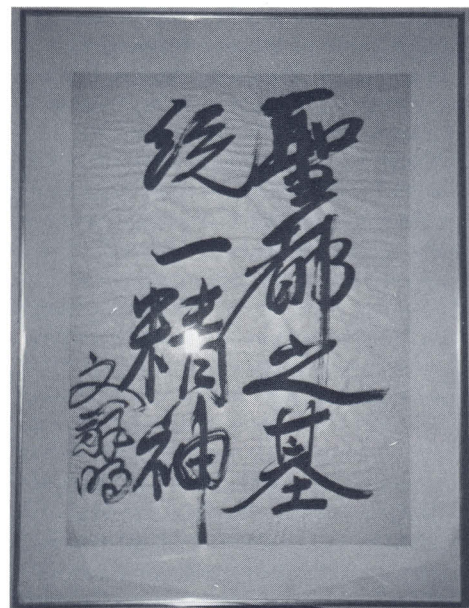 聖都之基
統一精神
文鮮明